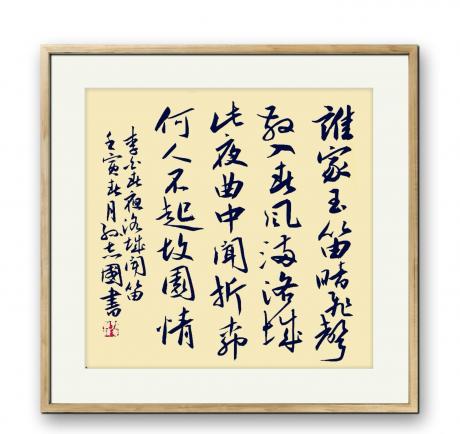 誰家玉笛暗飛聲
散入春風滿洛城
此夜曲中聞折柳
何人不起故園情
李白春夜洛城聞笛
壬寅春月孫志國書